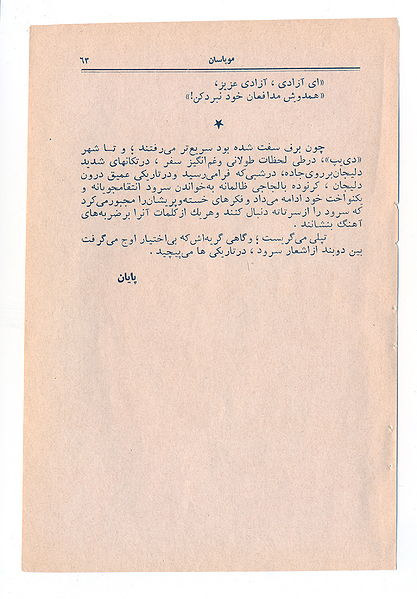 موپاسان
۶۳
«ای آزادی ، آزادی عزیز،
«همدوش مدافعان خود نبردکن!»
چون برف سفت شده بود سریع‌تر می‌رفتند ؛ و تـا شهر
«دی‌یپ»، درطی لحظات طولانی و غم‌انگیز سفر ، درتکانهای شدید
دلیجان برروی‌جاده، درشبی‌که فرامی‌رسید و درتاریکی عمیق درون
دلیجان ، کرنوده بالجاجی ظالمانه به‌خواندن سرود انتقامجویانه و
یکنواخت خود ادامه می‌داد و فکرهای خسته‌وپریشان‌را مجبورمی‌کرد
که سرود را ازسرتاته دنبال کنند و هریك ازکلمات آنرا برضربه‌های
آهنگ بنشانند .
تپلی می‌گریست ؛ و گاهی گریه‌اش‌که بی‌اختیار اوج می‌گرفت
بین دوبند ازاشعار سرود ، درتاریکی ها می‌پیچید .
پایان